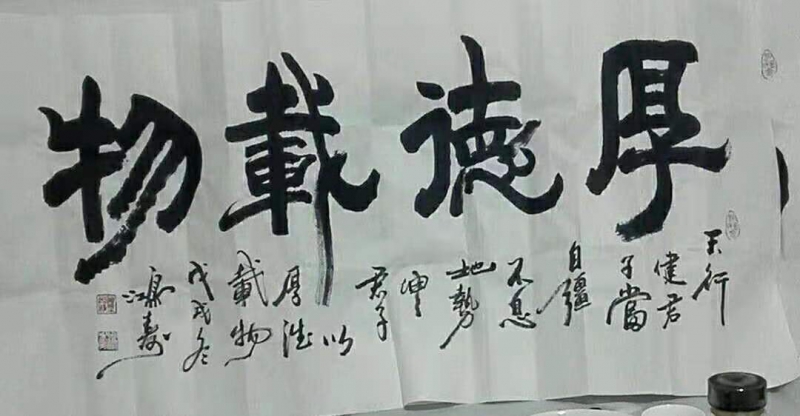 厚德載物
天行
健君
子當
自彊
不息
地勢
坤
君子
以
厚德
載物
戊戌冬